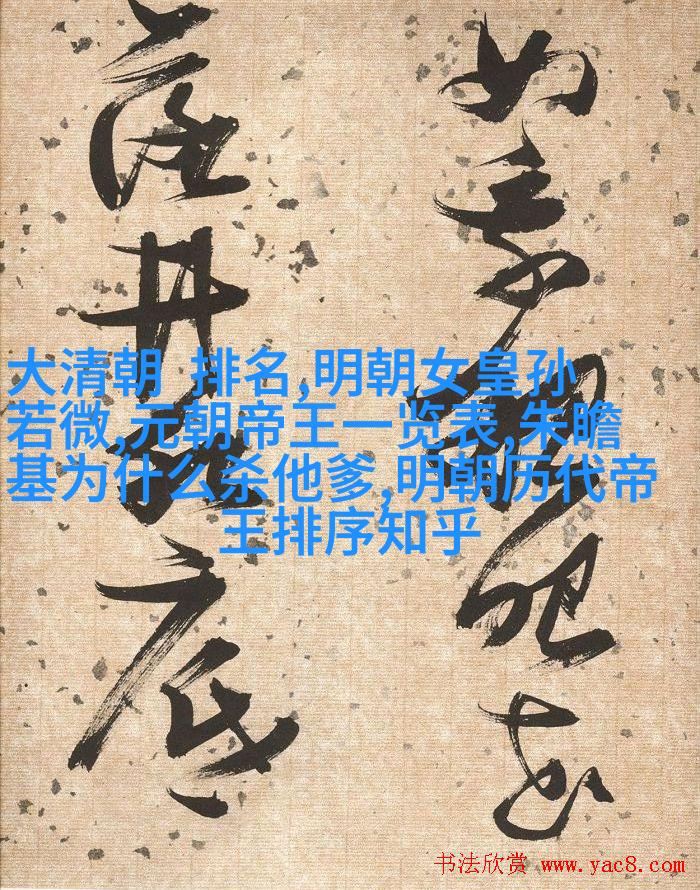 似乘船眼花
落井水底
大清朝 排名,明朝女皇孙
若微,元朝帝王一览表,朱瞻
基为什么杀他爹,明朝历代帝
王排序知乎
书法欣赏 www.yac8.com